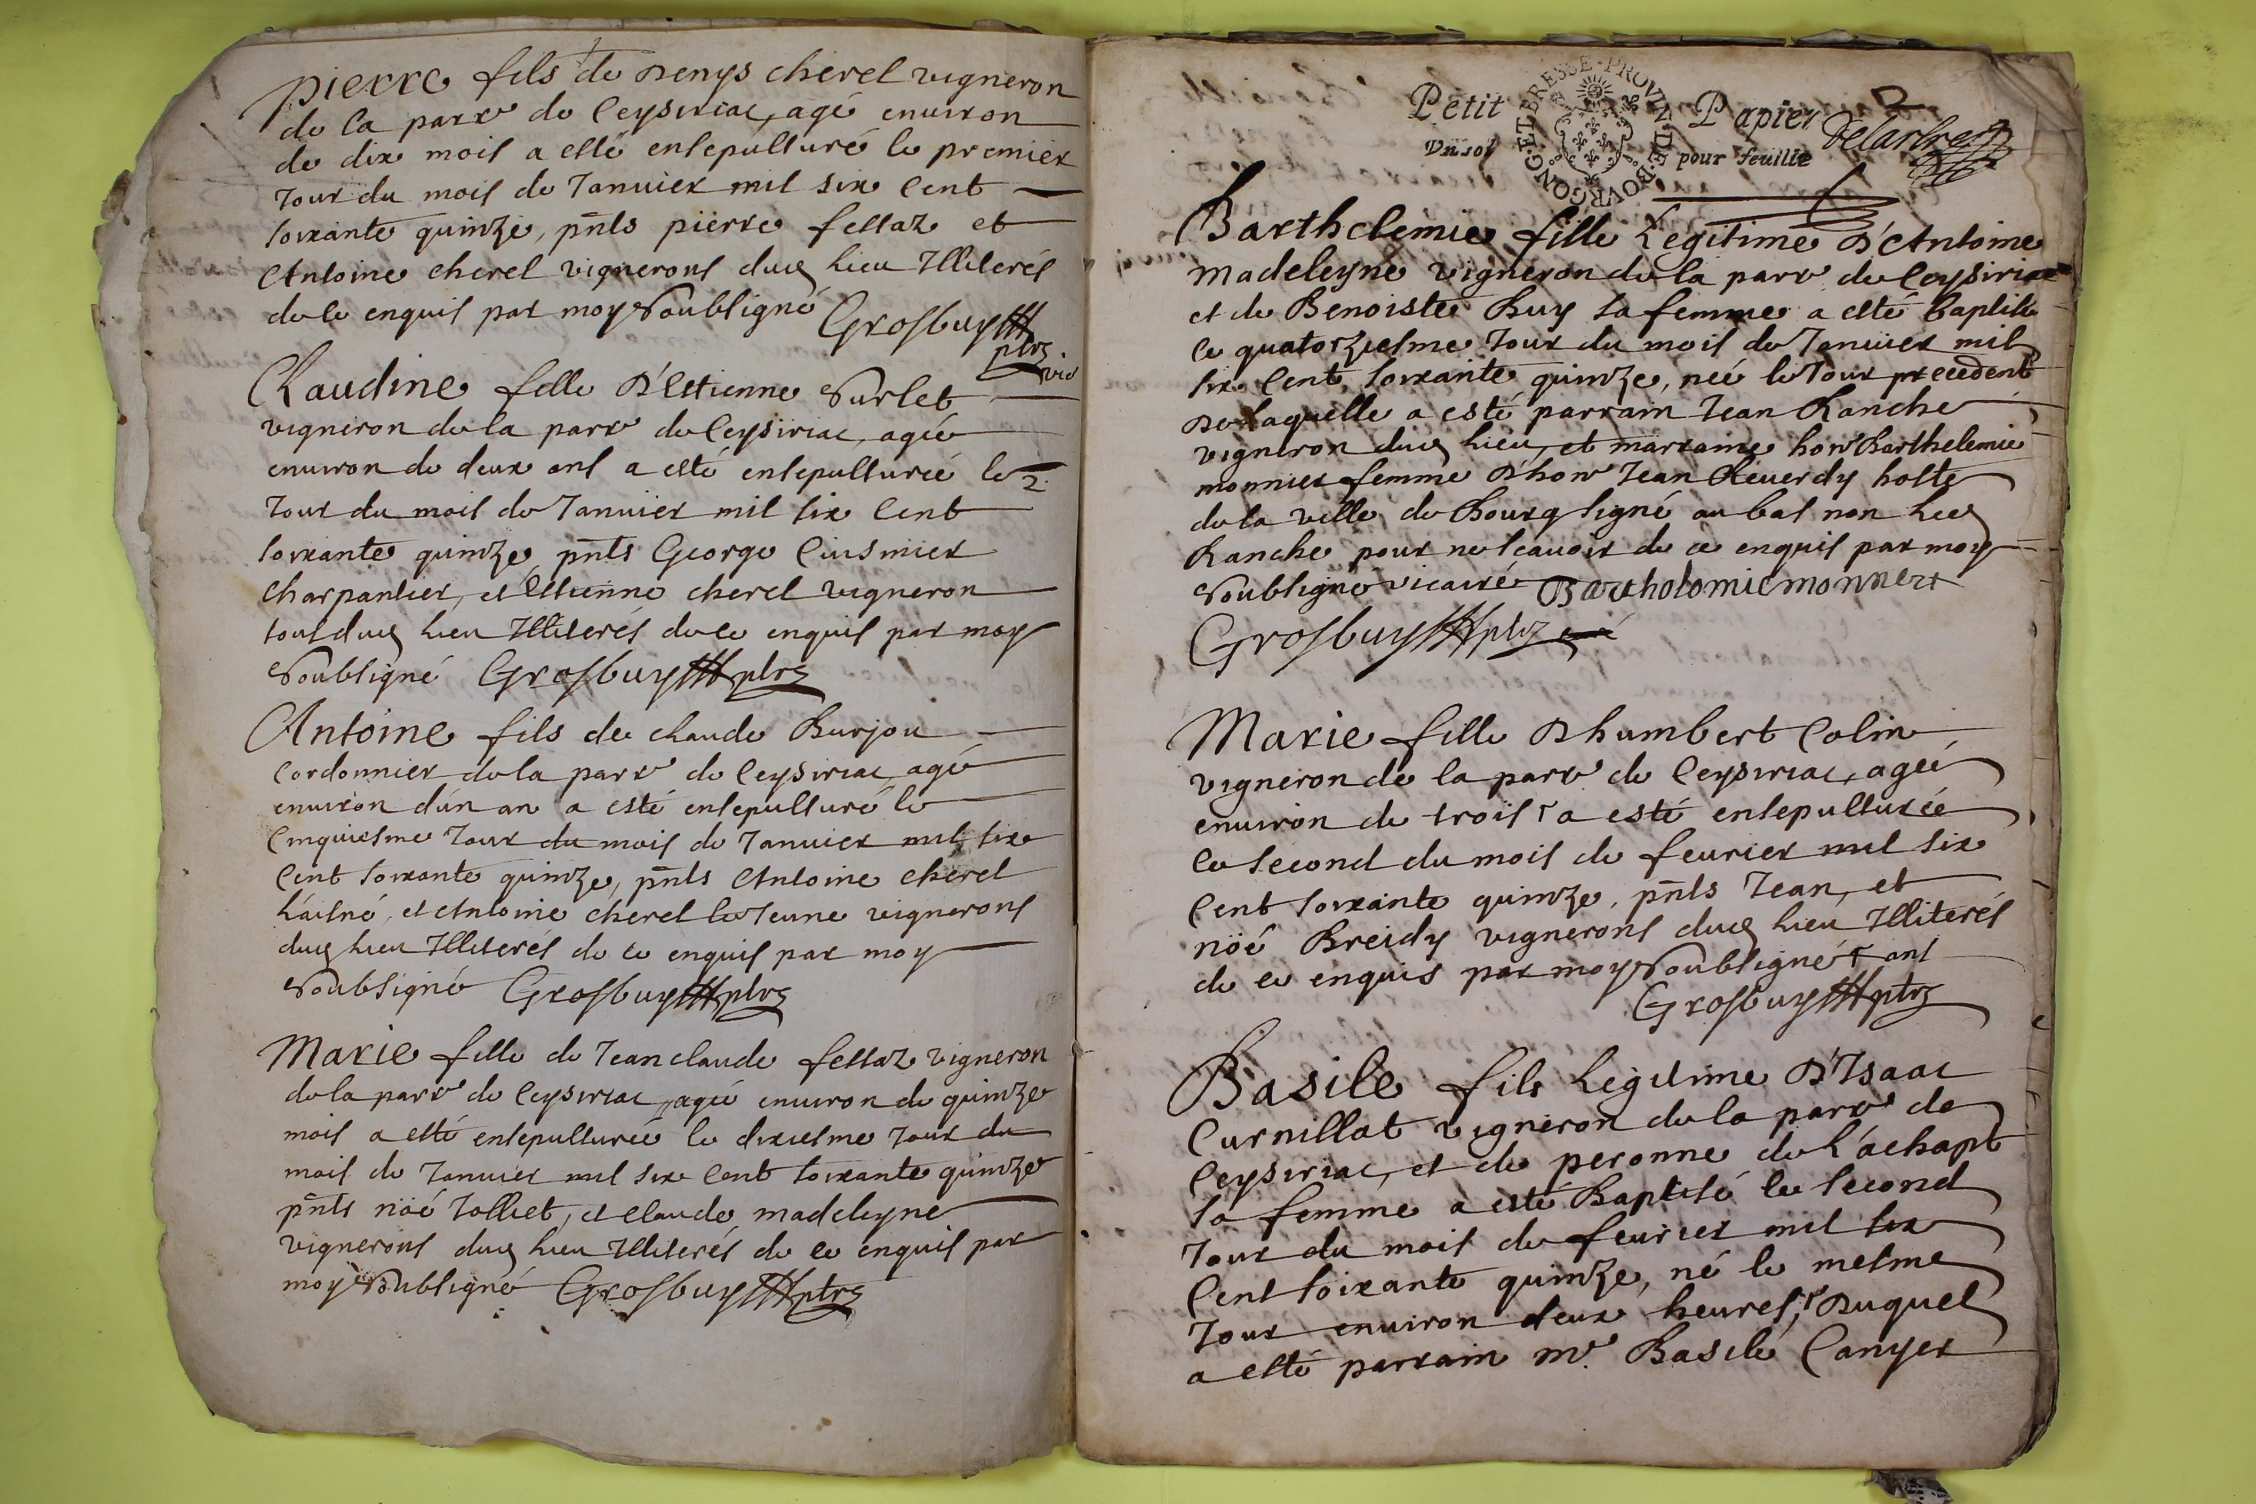 Pierre fils de Denys cherel vigneron
de la parr.e de Ceysiriac, agé enuiron
de dix mois a esté ensepulturé le premier
Jour du mois de Januier mil six Cent
soixante quinze, pnts pierre fettaz et
Antoine cherel vignerons dud lieu Illiterés
de ce enquis par moy soubsigné Grosbuy
ptre
vic
Claudine fille D'Estienne Surlet
vigneron de la parr.e de Ceysiriac, agée
enuiron de deux ans a esté ensepulturée le 2.
Jour du mois de Januier mil six Cent
soixante quinze, pnts George
charpantier, et Estienne cherel vigneron
tous dud lieu Illiterés de ce enquis par moy
soubsigné Grosbuy ptre
Antoine fils de claude Burjou
Cordonnier de la parr.e de Ceysiriac agé
enuiron d'un an a esté ensepulturé le
Cinquiesme Jour du mois de Januier mil six
Cent soixante quinze, pnts Antoine cherel
L'aisné, et Antoine cherel le Jeune vignerons
dud lieu Illiterés de ce enquis par moy
soubsigné Grosbuy ptre
Marie fille de Jean claude fettaz vigneron
de la parr.e de Ceysiriac, agée enuiron de quinze
mois a esté ensepulturée le dixiesme Jour du
mois de Januier mil six Cent soixante quinze
pnts noé Jolliet, et claude madeleyne
vignerons dud lieu Illiterés de ce enquis par
moy soubsigné Grosbuy ptre
Petit Papier
Vn sol pour feuille
BOVRGONG·ET·BRESSE·PROVIN·DE
Delarbre
Barthelemie fille Legitime D'Antoine
madeleyne vigneron de la parr.e de Ceysiriac
et de Benoiste Buy sa femme a esté baptisée
le quatorziesme Jour du mois de Januier mil
six Cent soixante quinze, née le Jour precedent
De laquelle a esté parrain Jean Ranche
vigneron dud lieu, et marraine hon.e Barthelemie
monnier femme D'hon.e Jean Reuerdy hoste
de la ville de Bourg signé au bas non led
Ranche pour ne scauoir de ce enquis par moy
soubsigné vicaire Bartholomie monnert
Grosbuy ptre
Marie fille D'humbert Colin
vigneron de la parr.e de Ceysiriac, agée
enuiron de trois a esté ensepulturée
le second du mois de feurier mil six
Cent soixante quinze, pnts Jean, et
noé Breidy vignerons dud lieu Illiterés
de ce enquis par moy soubsigné ans
Grosbuy ptre
Basile fils Legitime D'Isaac
Curnillat vigneron de la parr.e de
Ceysiriac, et de peronne de L'achapt
sa femme a esté Baptisé le second
Jour du mois de feurier mil six
Cent soixante quinze, né le mesme
Jour enuiron deux heures, Duquel
a esté parrain m.e Basile Canyer